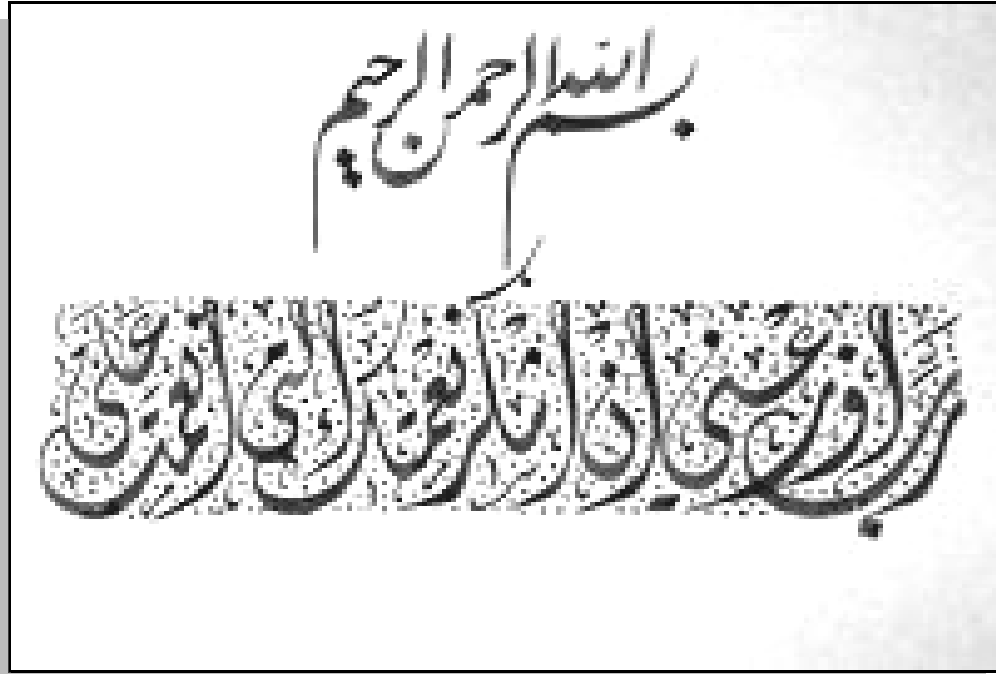 بسم الله الرحمن الرحیم
رب اوزعنی ان اشکر نعمتک التی انعمت علی